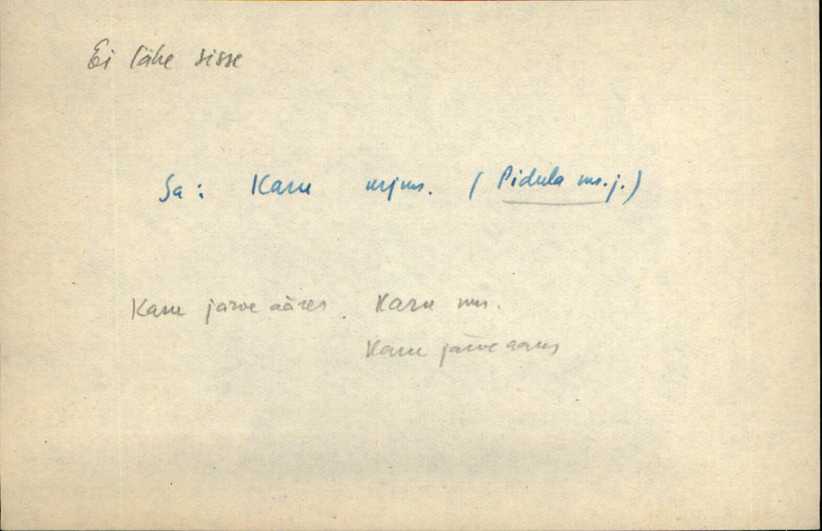 Ei lähe sisse
Sa: Karu mjms. (Pidula ms.j.)
Karu järve ääres. Karu ms.
Karu järve ääres